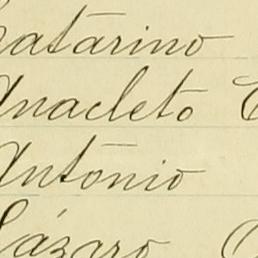 Catarino
Anacleto
António
Lázaro